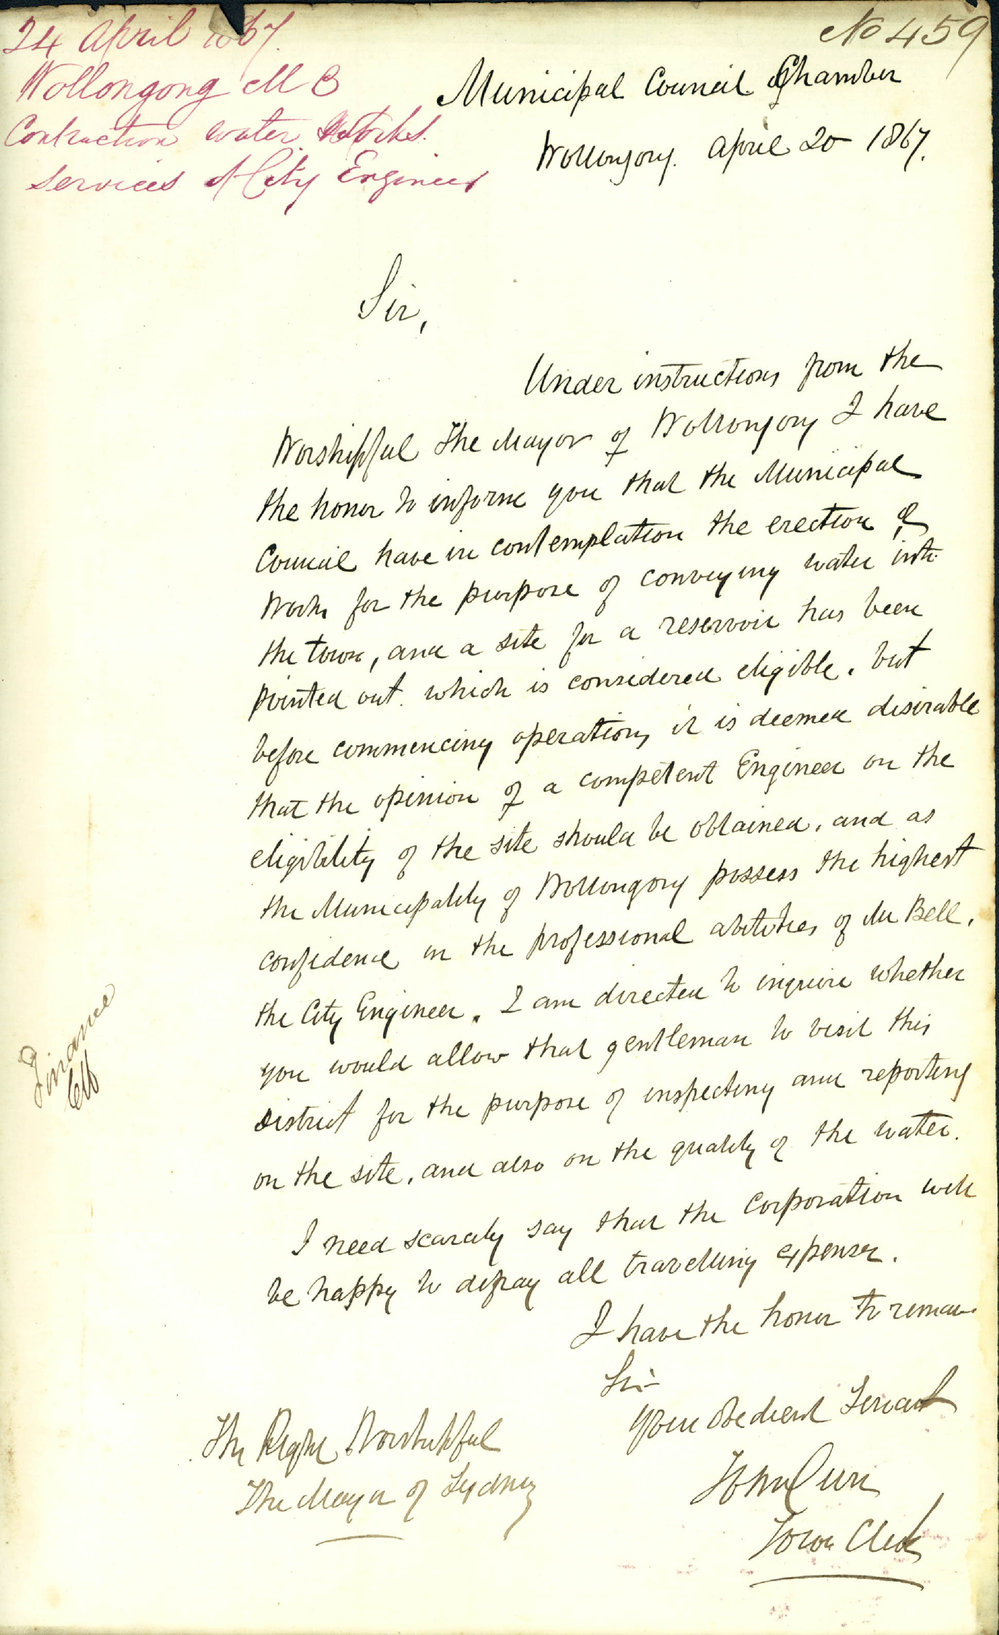 24 April 1867.
Wollongong M B
Contruction water Works.
Services of City Engineer
No 459
Municipal Council Chamber
Wollongong. April 20 1867.
Sir,
Under instructions from the
Worshipful The Mayor of Wollongong I have
the honor to inform you that the Municipal
Council have in contemplation the erection of
Works for the purpose of conveying water into
the town, and a site for a reservoir has been
pointed out which is considered eligible, but
before commencing operations it is deemed disirable
that the opinion of a competent Engineer on the
eligibility of the site should be obtained, and as
the Municipality of Wollongong possess the highest
confidence in the professional abilities of Mr Bell,
the City Engineer, I am directed to inquire whether
you would allow that gentleman to visit this
District for the purpose of inspecting and reporting
on the site, and also on the quality of the water.
I need scarcely say that the Corporation will
be happy to defray all travelling expenses.
I have the honor to remain
Sir
Your Obedient Servant
John Curr
Town Clerk
The Right Worshipful
The Mayor of Sydney
Finance